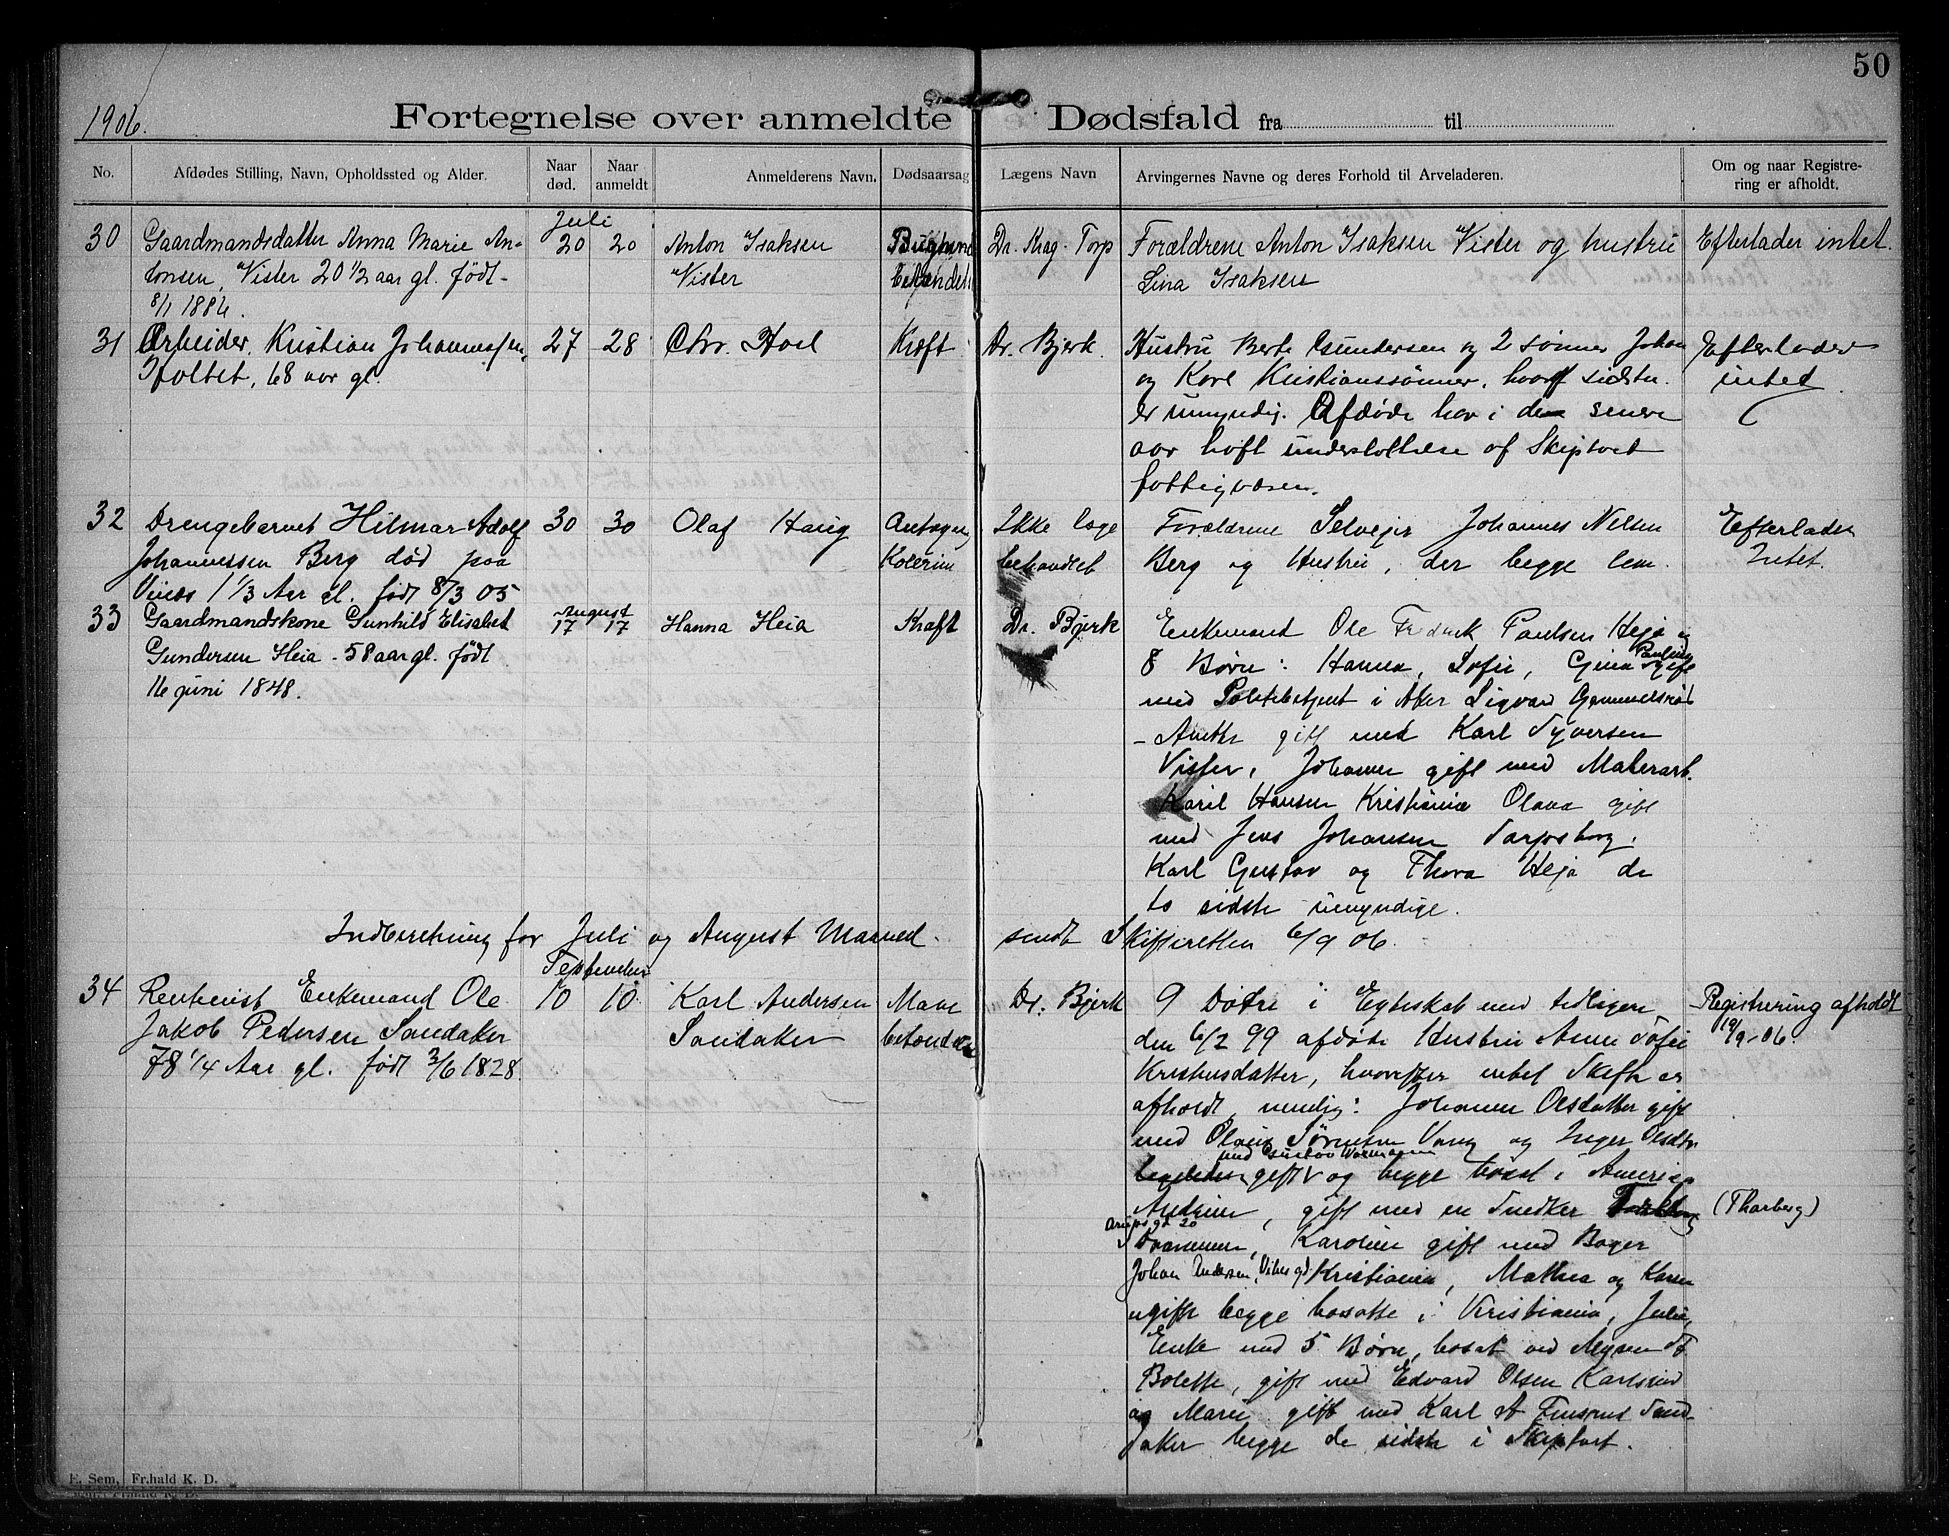 50
1906.
Fortegnelse over anmeldte Dødsfald fra til
No.
Afdødes Stilling, Navn, Opholdssted og Alder.
Naar død.
Naar anmeldt
Anmelderens Navn.
Dødsaarsag
Lægens Navn
Arvingernes Navne og deres Forhold til Arveladeren.
Om og naar Registre-
ring er afholdt.
Juli
30 Gaardmandsdatter Anna Marie An- 20 20 Anton Isaksen Dr. Krag-Torp Forældrene Anton Isaksen Vister og hustru Efterlader intet.
tonsen, Vister 20 1/2 aar gl. født Vister Lina Isaksen
8/1 1886.
31 Arbeider, Kristian Johannessen, 27 28 Chr. Hoel Kræft Dr. Bjerk. Hustru Berte Gundersen og 2 sønner Johan Efterlader
68 aar gl. og Karl Kristianssønner, hvoraf sidste intet
er umyndig. Afdøde har i de senere
aar haft understøttelse af Skiptvet
fattigvæsen.
32 Drengebarnet Hilmar Adolf 30 30 Olaf Haug Ikke læge Forældrene Selveier Johannes Nilsen Efterlader
Johannessen Berg død paa Kolerine behandlet Berg og Hustru, der begge leve. Intet.
1 1/3 Aar gl. født 8/3 05
August
33 Gaardmandskone Gunhild Elisabet 17 17 Hanna Heia Kræft Dr. Bjerk Enkemand Ole Fredrik Paulsen Heja og
Gundersen Heia - 58 aar gl. født 8 Børn: Hanna, Sofie, Gina Paulsen gift
16 juni 1848. med Politibetjent i Aker Sigvard Gammelsrød
- Anette gift med Karl Syversen
Vister, Johanne gift med Malerarb.
Karil Hansen Kristiania Olava gift
med Jens Johansen Sarpsborg.
Karl Gustav og Thora Heja de
to sidste umyndige.
Indberetning for Juli og August Maaned - sendt Skifteretten 6/9 06.
September
34 Enkemand Ole 10 10 Karl Andersen Mave Dr. Bjerk 9 Døtre i Egteskab med tidligere Registrering afholdt
Jakob Pedersen Sandaker Sandaker betændelse den 6/2 99 afdøde Hustru Anne Sofie 19/9-06.
78 1/4 Aar gl. født 3/6 1828. Kristensdatter, hvorefter intet Skifte er
afholdt, nemlig: Johanne Olsdatter gift
med Olaus Sørensen Vang og Inger Olsdtr
med Gustav
gift og begge bosat i Amerika
Andrine, gift med en Snedker (Tharberg)
Drammen, Karoline gift med Bager
Johan Andersen, Kristiania, Mathea og Karen
ugifte begge bosatte i Kristiania, Julie,
Enke med 5 Børn, bosat ved Mysen St
Bolette, gift med Edvard Olsen Karlsrud
og Marie gift med Karl A. Sand-
aker begge de sidste i Skiptvet.
E. Sem, Fr.hald K. D.